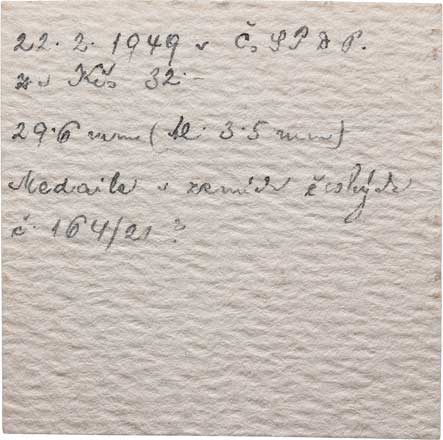 22. 2. 1949 v Čs SPDP.
za Kčs 32.-
29.6 mm (tl. 3.5 mm)
Medaile v zemích českých
č. 164/21 ?